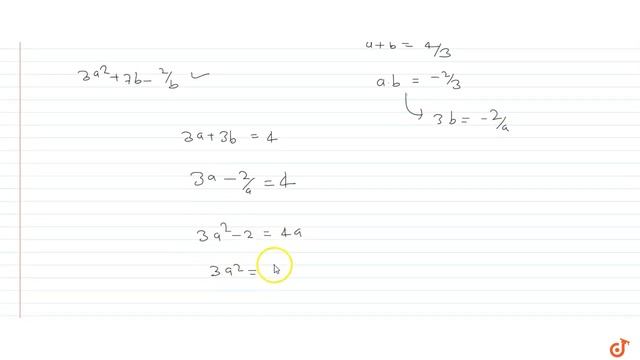 a+b = 4/3
3a²+7b-2/b ✓
a.b = -2/3
3b = -2/a
3a+3b = 4
3a-2/a = 4
3a²-2 = 4a
3a² =